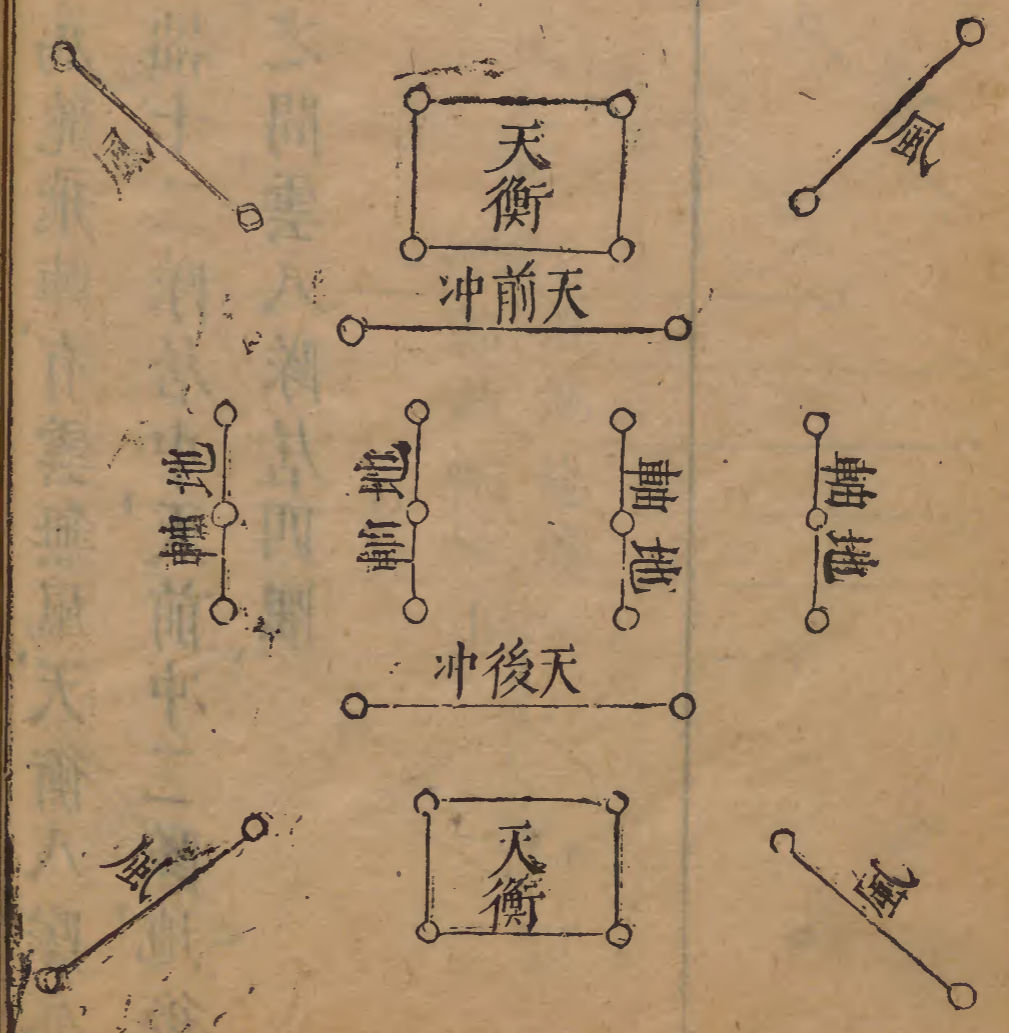 風
天衡
風
天前冲
地軸
地軸
地軸
地軸
天後冲
風
天衡
風